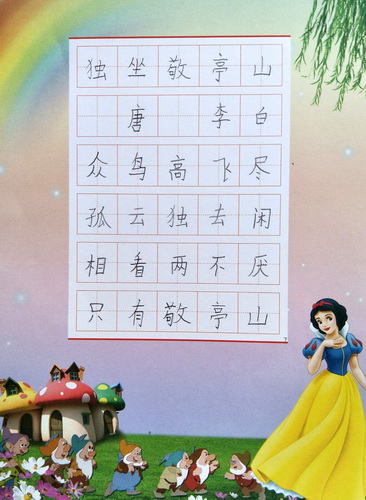 独坐敬亭山
唐 李白
众鸟高飞尽
孤云独去闲
相看两不厌
只有敬亭山